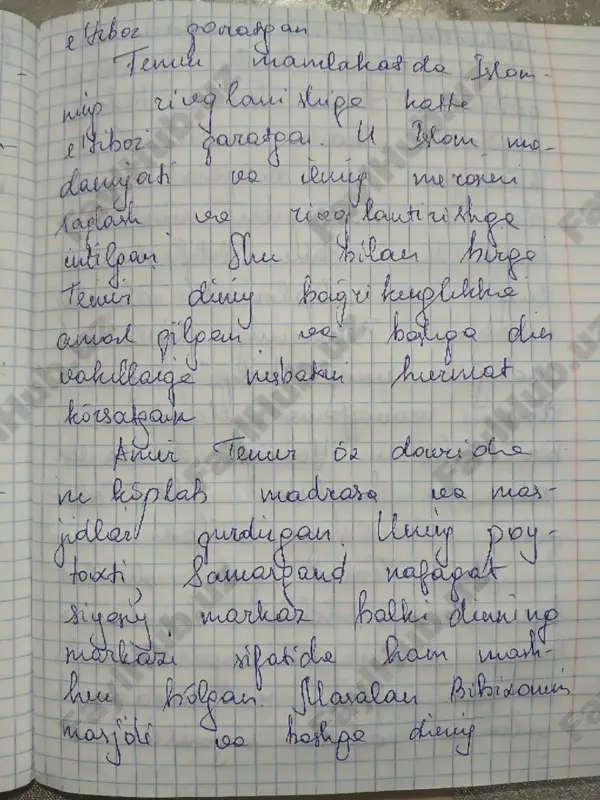 e'tibor qaratgan
Temur mamlakatda Islom-
ning rivojlanishiga katta
e'tibor qaratgan. U Islom ma-
daniyati va ilmiy merosini
saqlash va rivojlantirishga
intilgan Shu bilan birga
Temur diniy bag'rikenglikka
amal qilgan va boshqa din
vakillariga nisbatan hurmat
körsatgan
Amir Temur öz davrida
köplab madrasa va mas-
jidlar qurdirgan. Uning poy-
taxti Samarqand nafaqat
siyosiy markaz balki dinning
markazi sifatida ham mash-
hur bölgan. Masalan Bibixonim
masjidi va boshqa diniy
FaylHub.uz